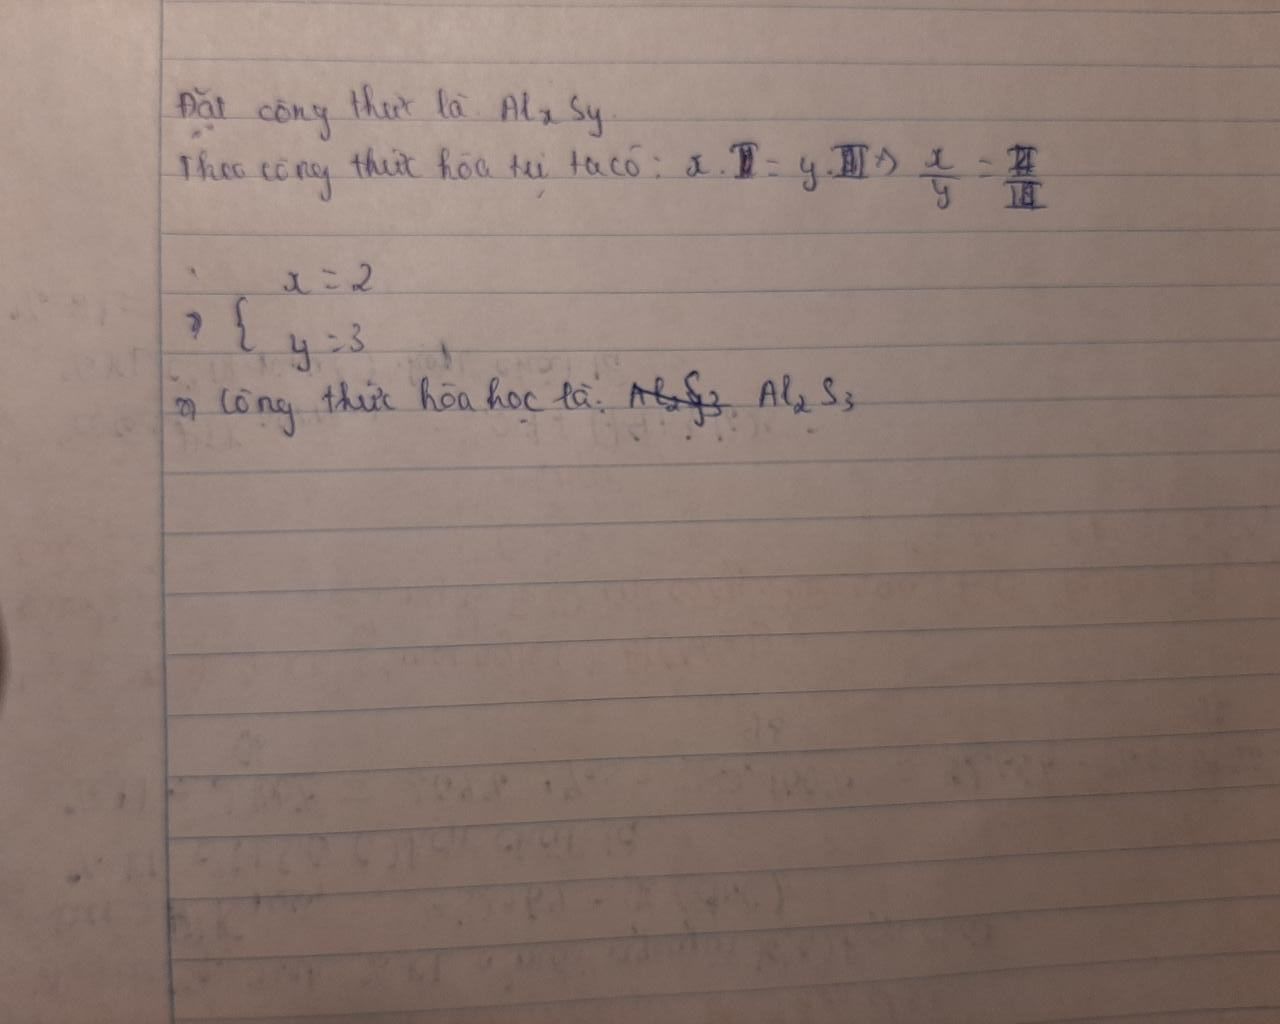 Đặt công thức là AlxSy
Theo công thức hóa trị ta có: x. = y. => x/y = II/III
x = 2
=> {
y = 3
=> công thức hóa học là: Al2S3